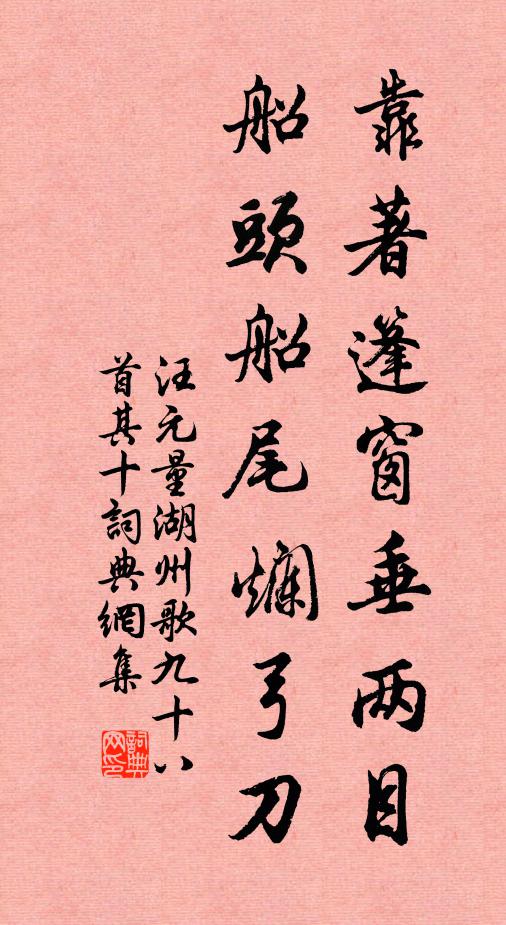 靠著篷窗垂两目
船頭船尾爛弓刀
汪元量湖州歌九十八
首其十詞典網集
詞典網印